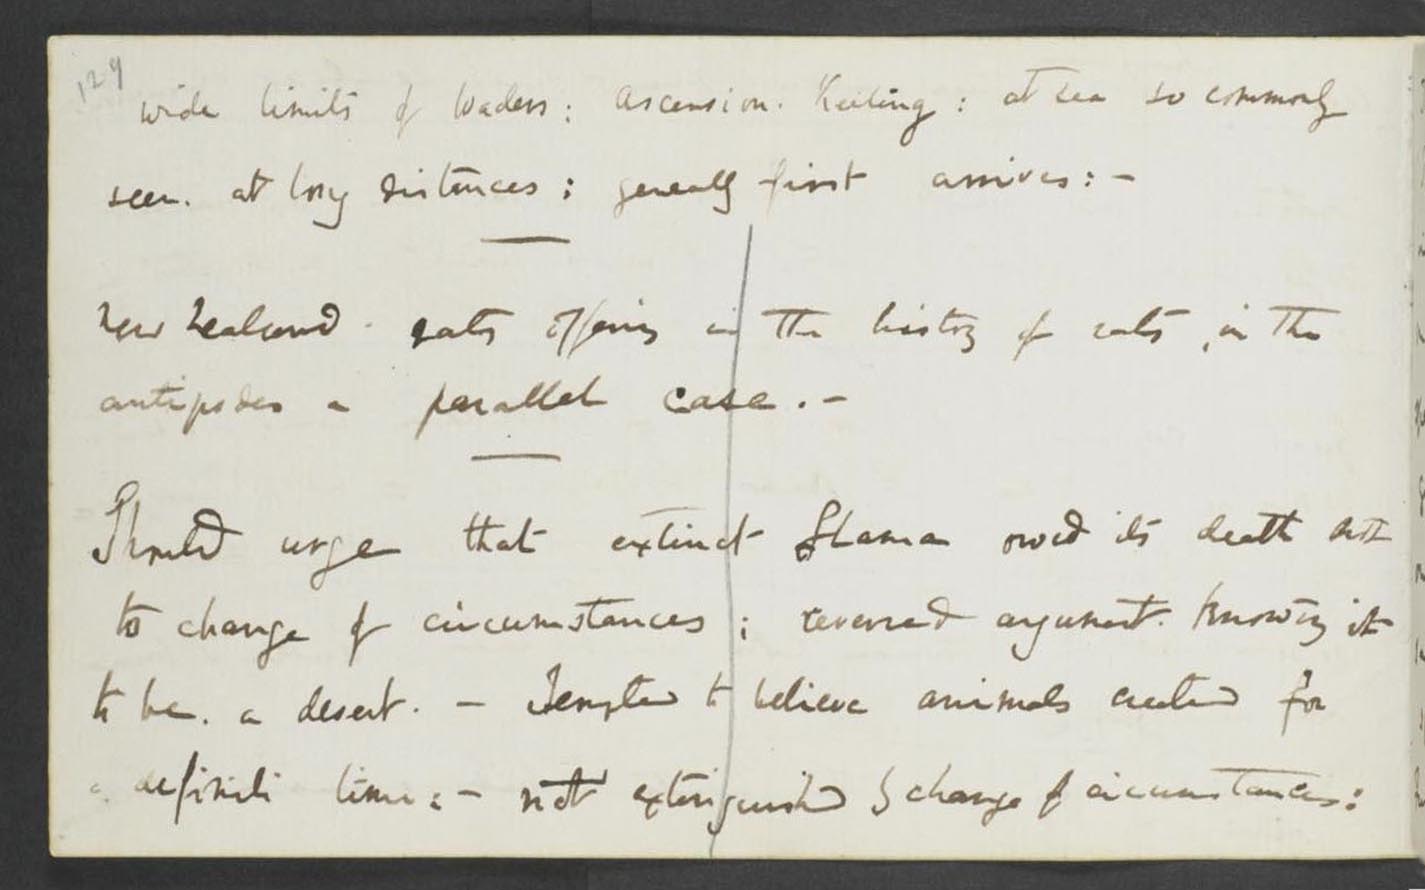 129
wide limits of Waders: Ascension. Keeling: at sea so commonly
seen. at long distances; generally first arrives: —
New Zealand rats offering in the history of rats, in the
antipodes a parallel case. —
Should urge that extinct Llama owed its death not
to change of circumstances; reversed argument. knowing it
to be. a desert. — Tempted to believe animals created for
a definite time: — not extinguished by change of circumstances: